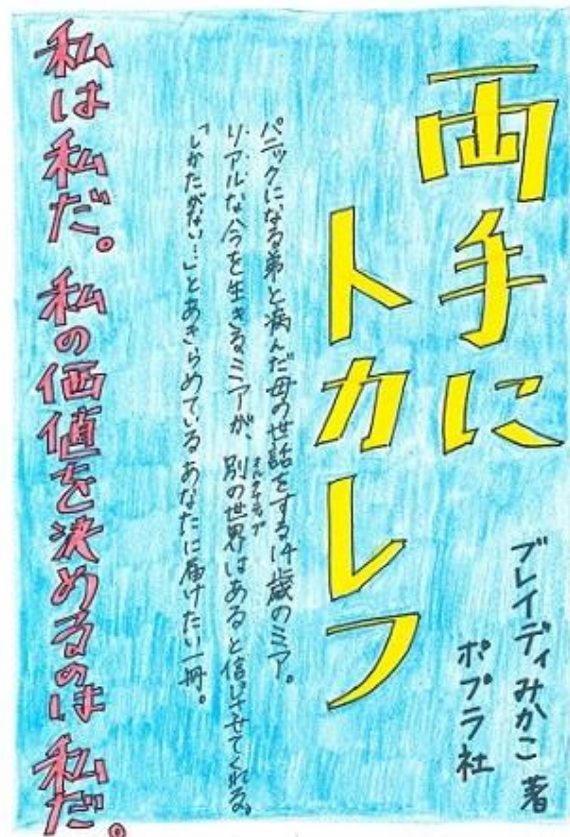 両手に
トカレフ
ブレイディみかこ 著
ポプラ社
パニックになる弟と病んだ母の世話をする14歳のミア。
リアルな今を生きるミアが、別の世界はあると信じさせてくれる。
オルタナティブ
「しかたがない…」とあきらめているあなたに届けたい一冊。
私は私だ。私の価値を決めるのは私だ。